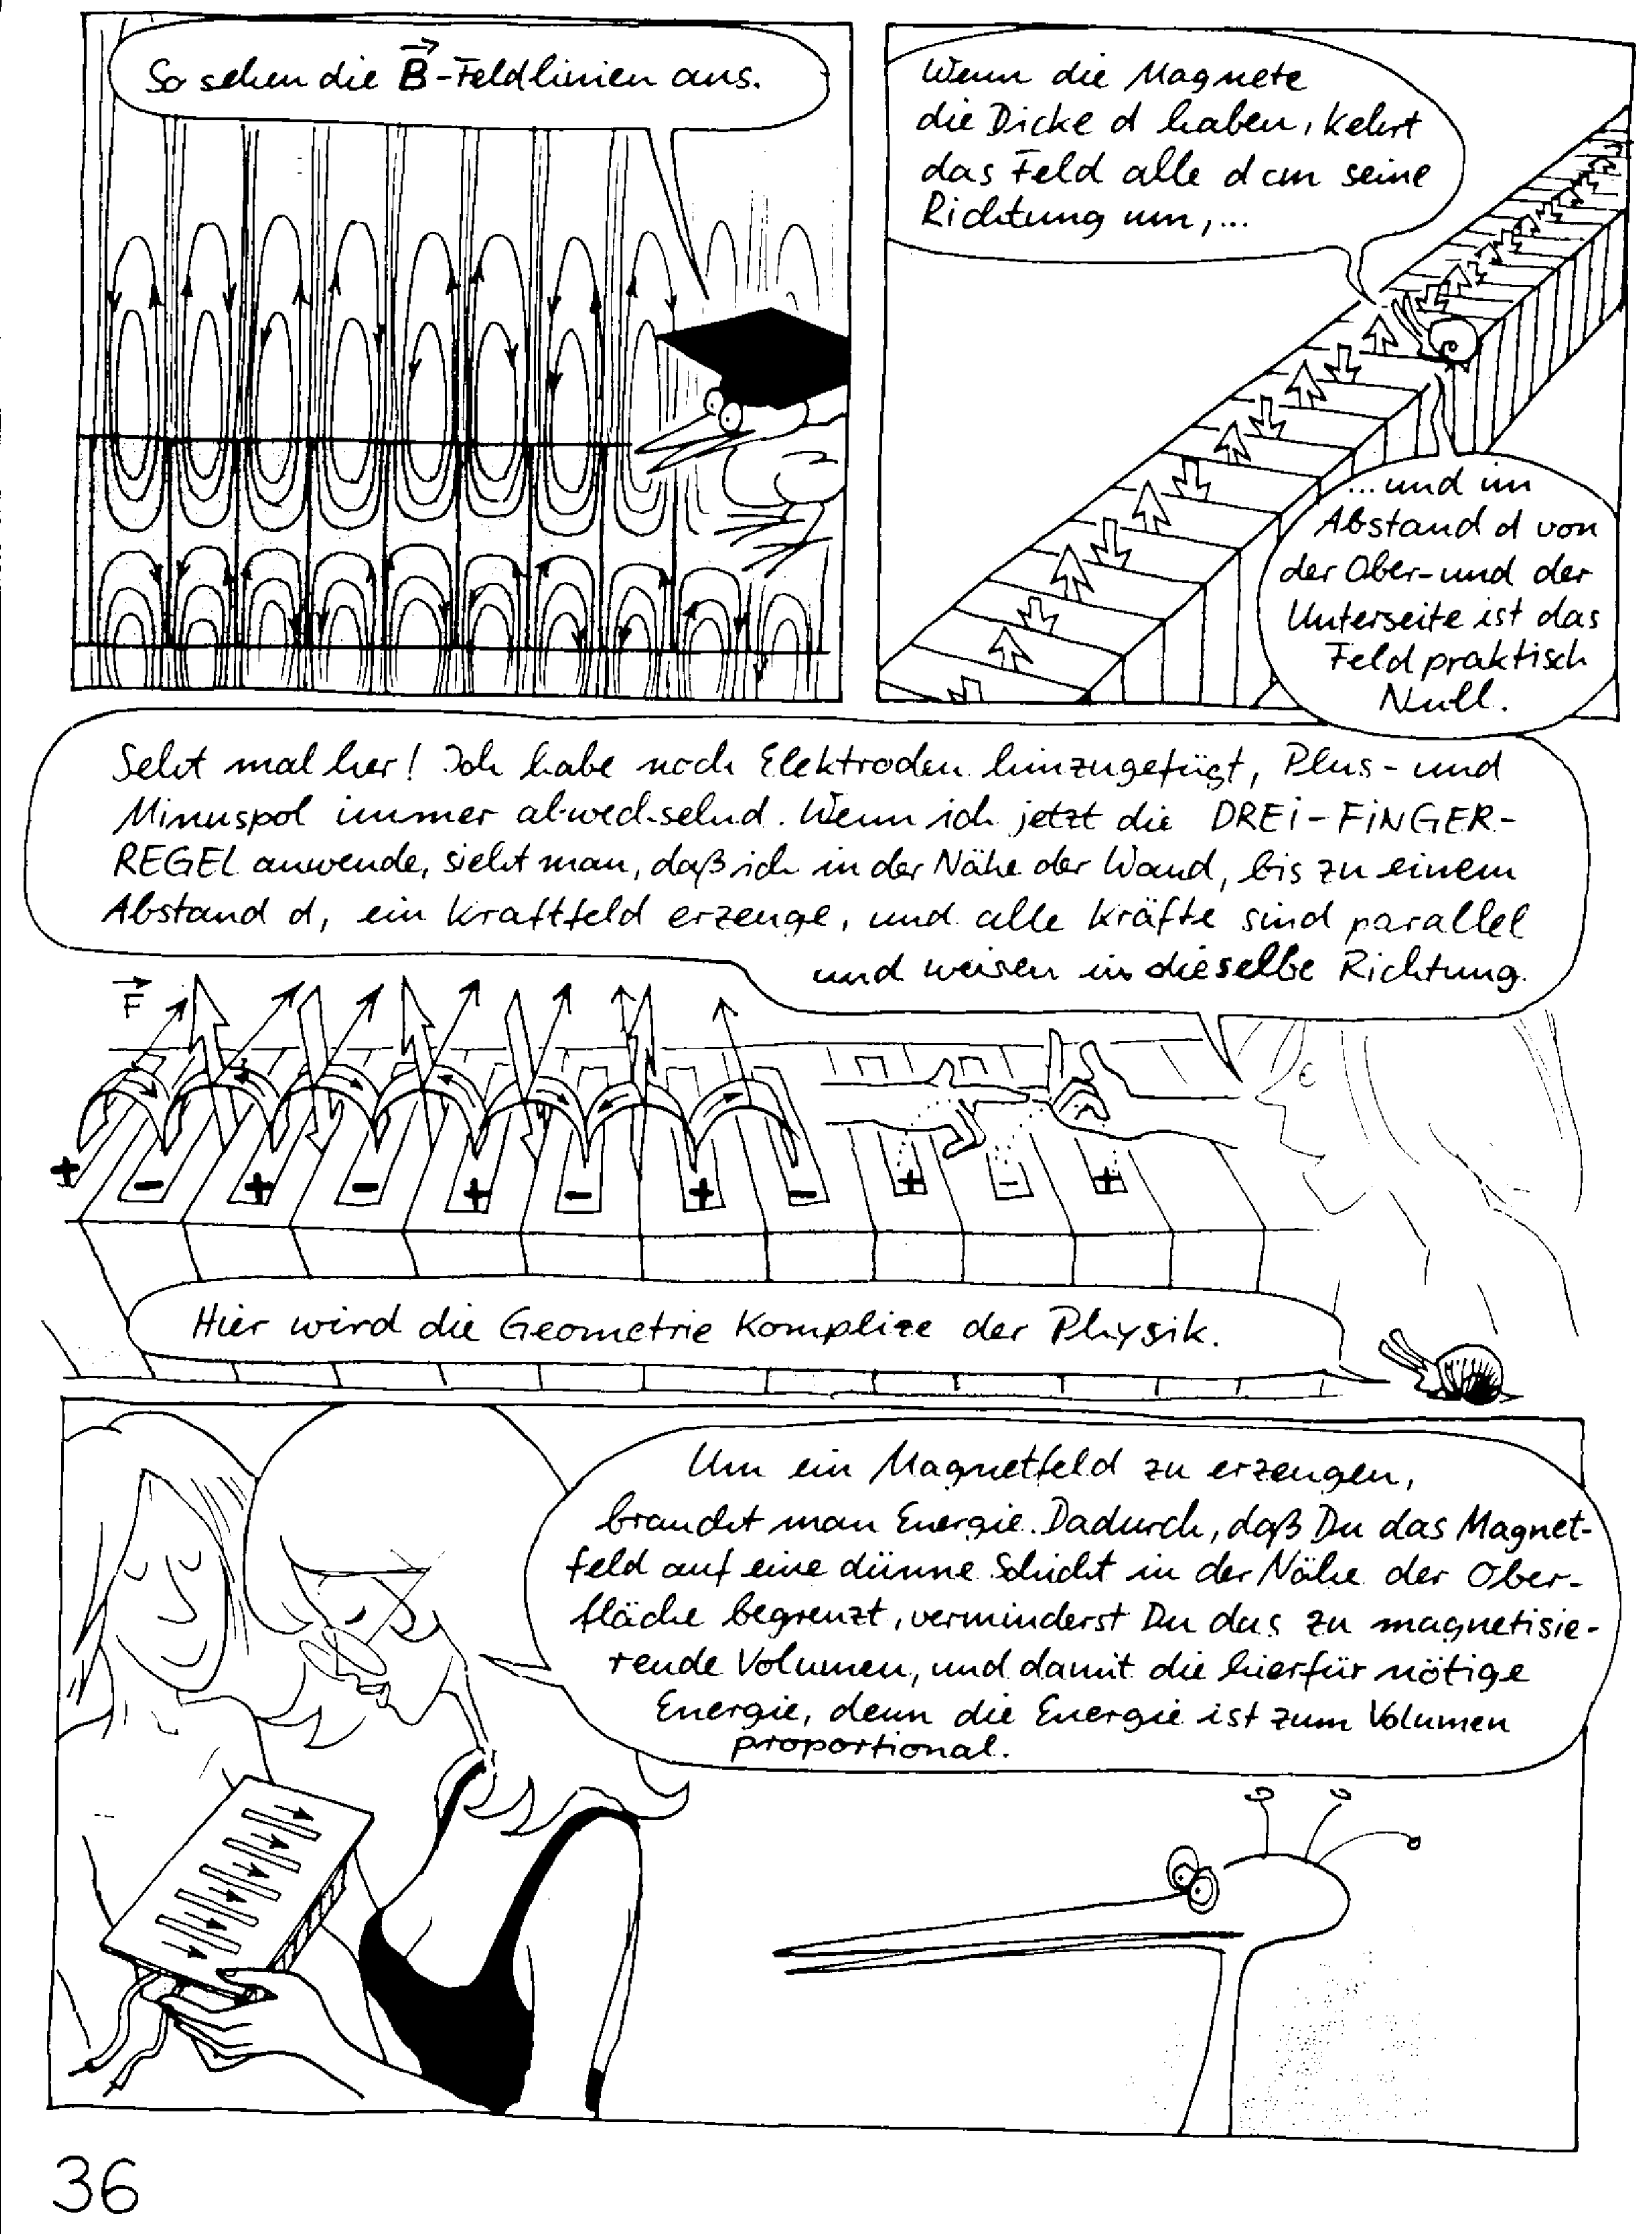 So sehen die B-Feldlinien aus.
Wenn die Magnete
die Dicke d haben, kehrt
das Feld alle d cm seine
Richtung um,...
...und im
Abstand d von
der Ober- und der
Unterseite ist das
Feld praktisch
Null.
Seht mal her! Ich habe noch Elektroden hinzugefügt, Plus- und
Minuspol immer abwechselnd. Wenn ich jetzt die DREI-FINGER-
REGEL anwende, sieht man, daß ich in der Nähe der Wand, bis zu einem
Abstand d, ein Kraftfeld erzeuge, und alle Kräfte sind parallel
und weisen in dieselbe Richtung.
F
+ - + - + - + - + - +
Hier wird die Geometrie Komplize der Physik.
Um ein Magnetfeld zu erzeugen,
braucht man Energie. Dadurch, daß Du das Magnet-
feld auf eine dünne Schicht in der Nähe der Ober-
fläche begrenzt, verminderst Du das zu magnetisie-
rende Volumen, und damit die hierfür nötige
Energie, denn die Energie ist zum Volumen
proportional.
36